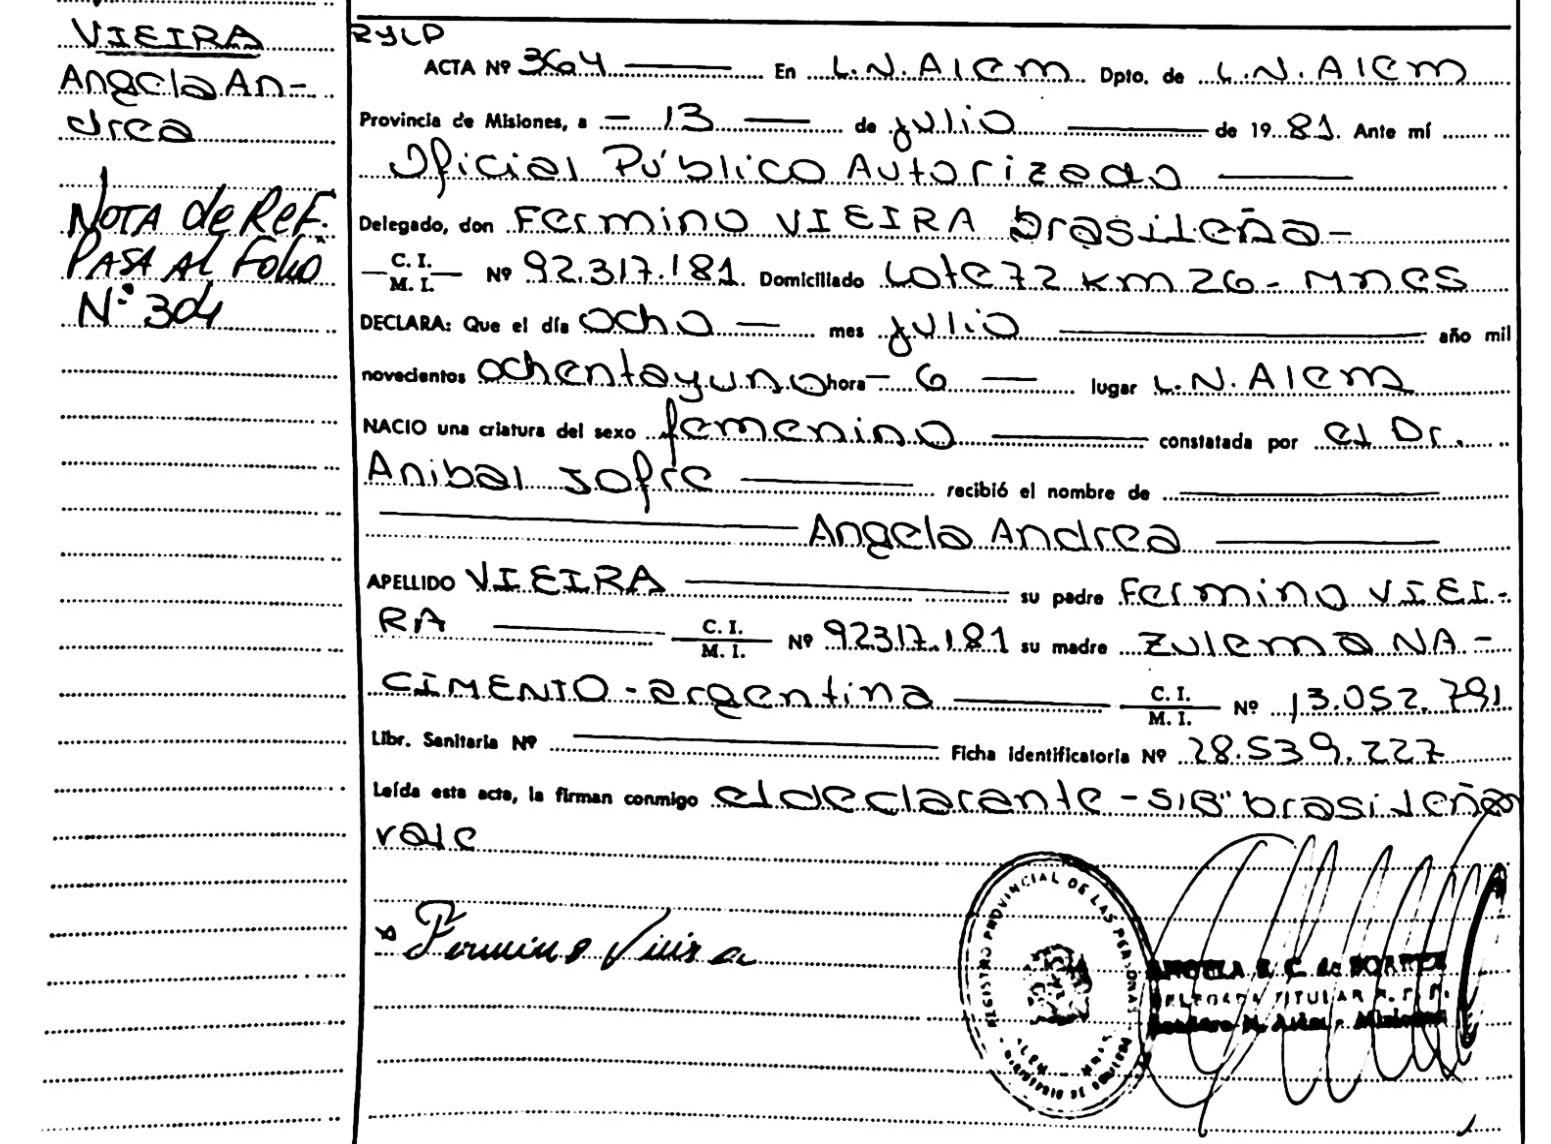 VIEIRA
Angela An-
drea
NOTA de REF.
PASA AL Folio
Nº 304
RYLP
ACTA Nº 364 En L.N.Alem Dpto. de L.N.Alem
Provincia de Misiones, a - 13 — de julio de 1981. Ante mí
Oficial Público Autorizado
Delegado, don Fermino VIEIRA brasileña-
C. I.
M. I. Nº 92.317.181. Domiciliado Lote 72 Km 26- Mnes
DECLARA: Que el día ocho — mes julio año mil
novecientos ochentayuno hora - 6 — lugar L.N.Alem
NACIO una criatura del sexo femenino constatada por el Dr.
Anibal Jofre recibió el nombre de
Angela Andrea
APELLIDO VIEIRA su padre Fermino VIEI-
RA C. I.
M. I. Nº 92317.181 su madre Zulema NA-
CIMENTO - argentina C. I.
M. I. Nº 13.052.791
Libr. Sanitaria Nº Ficha identificatoria Nº 28.539.227
Leída esta acta, la firman conmigo el declarante - S/B" brasileña
vale
Fermino Vieira
REGISTRO PROVINCIAL DE LAS PERSONAS
ANGELA E. C. de
DELEGADA TITULAR R. P. P.
Leandro N. Alem - Misiones